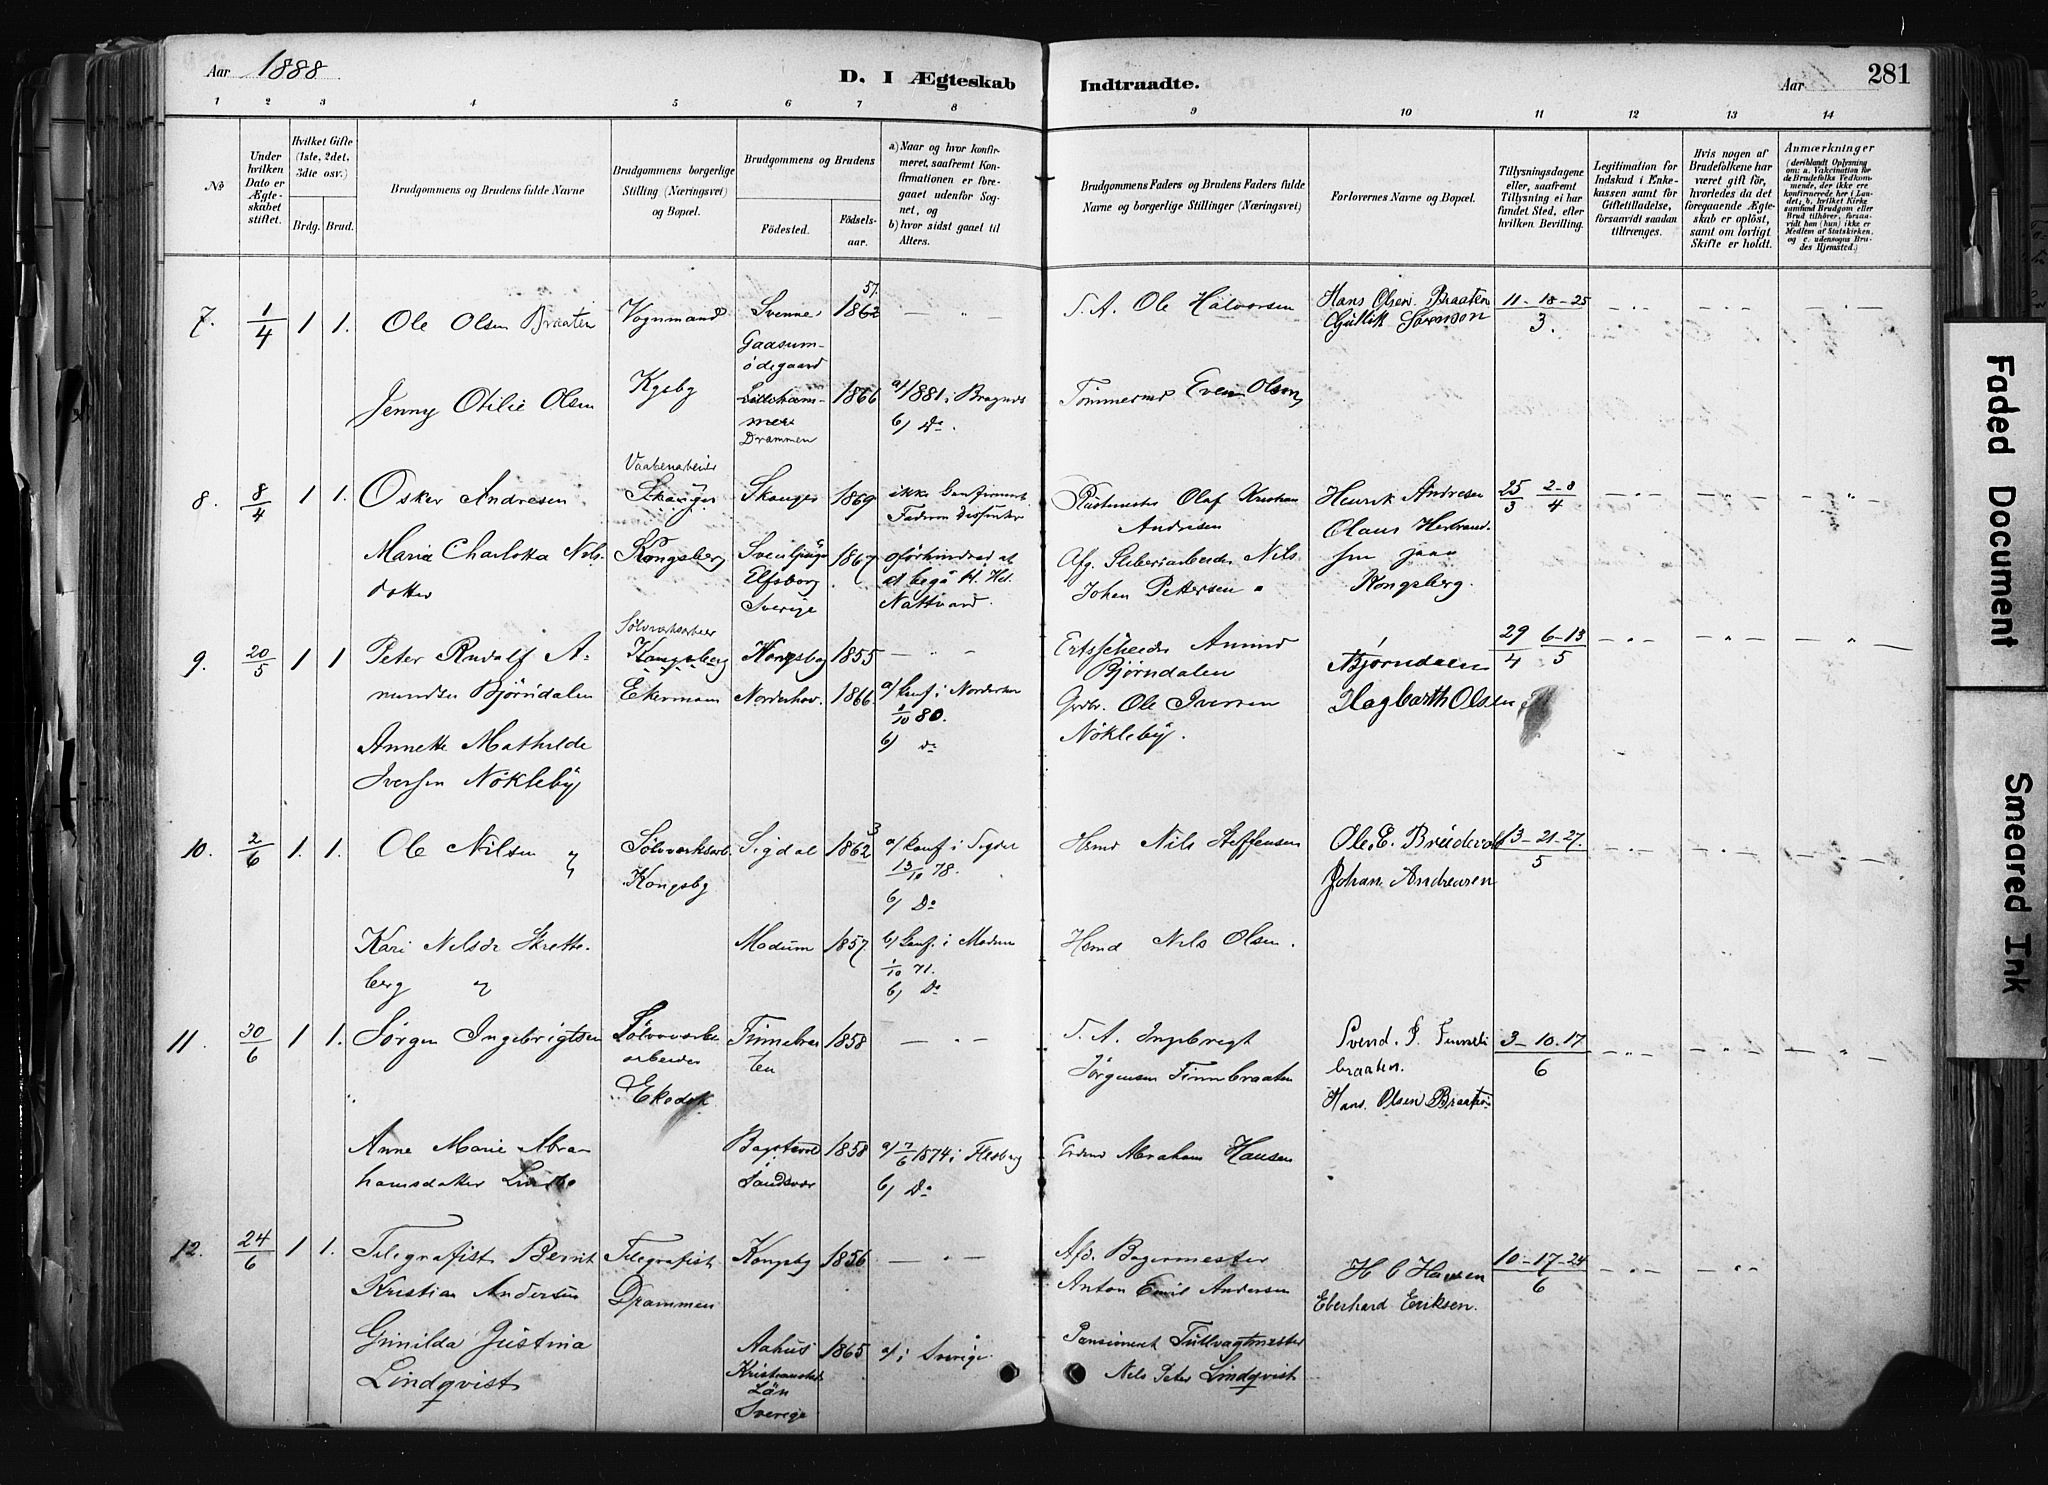 Aar 1888
D. I Ægteskab
Indtraadte.
Aar
281
1 2 3 4 5 6 7 8 9 10 11 12 13 14
No
Under hvilken Dato er Ægteskabet stiftet.
Hvilket Gifte (1ste, 2det, 3die osv.)
Brdg. Brud.
Brudgommens og Brudens fulde Navne
Brudgommens borgerlige Stilling (Næringsvei) og Bopæl.
Brudgommens og Brudens
Fødested.
Fødselsaar.
a) Naar og hvor konfirmeret, saafremt Konfirmationen er foregaaet udenfor Sognet, og
b) hvor sidst gaaet til Alters.
Brudgommens Faders og Brudens Faders fulde Navne og borgerlige Stillinger (Næringsvei)
Forlovernes Navne og Bopæl.
Tillysningsdagene eller, saafremt Tillysning ei har fundet Sted, efter hvilken Bevilling.
Legitimation for Indskud i Enkekassen samt for Giftetilladelse, forsaavidt saadan tiltrænges.
Hvis nogen af Brudefolkene har været gift før, hvorledes da det foregaaende Ægteskab er opløst, samt om lovligt Skifte er holdt.
Anmærkninger
(deriblandt Oplysning om: a. Vakcination for de Brudefolks Vedkommende, der ikke ere konfirmerede her i Landet; b. hvilket Kirkesamfund Brudgom eller Brud tilhører, forsaavidt han (hun) ikke er Medlem af Statskirken, og c. udensogns Brudes Hjemsted.)
7. 1/4 1 1. Ole Olsen Braaten Vognmand Svenne 1862 57. T. A. Ole Halvorsen Hans Olsen Braaten 11-18-25/3.
Gullik Sørenson
Gaasum-
ødegaard
Jenny Otilie Olsen Kgsby 1866 a/1881 i Bragnæs Tømmermd Even Olsen
b) Do.
Drammen
Vaabenarbeider
8. 8/4 1 1. Oskar Andresen Skauger 1869 ikke Konfirmeret Olaf Kristian Henrik Andresen 25/3 2-8/4
Faderen Dissenter Andresen Olaus Hertrand-
Maria Charlotta Nels- Kongsberg 1867 a förhindrad at Nils sen
dotter Elfsborg at begå H. Hel. Johan Pettersen Kongsberg.
Sverige Nattvard.
Sølvverksarbeider
9. 20/5 1 1 Peter Rudolf A- Kongsberg Kongsbg 1855 Amund Bjørndalen 29/4 6-13/5
mundsen Bjørndalen Ekermoen Norderhov. 1866. a/ konf. i Norderhov Bjørndalen Hagbarth Olsen
1/10 80. Grdbr. Ole Iversen
Annette Mathilde b) do Nökleby.
Iversen Nökleby
10. 2/6 1. 1. Ole Nilsen Sølvverksarb. Sigdal 1862 3 a/ konf. i Sigdal Hsmd Nils Steffensen Ole E. Brüdevol 13-21-27./5
Kongsbg 13/10 78. Johan Andreasen
b) Do
Kari Nilsdr Skrette- Modum 1857. b) konf. i Modum Hsmd Nils Olsen.
berg 1/10 71.
b) Do
11. 30/6 1 1. Jørgen Ingebrigtsen Sølvverks- Finnebraa- 1858 T. A. Ingebregt Svend J. 3-10-17/6
arbeider ten Jörgensen Finnbraaten braaten.
Hans Olsen Braaten
Anne Marie Abra- 1858 a/ 7/6 1874 i Flesberg Abraham Hansen
hamsdatter Sandsvær b) Do
12. 24/6 1 1. Telegrafist Bernt Telegrafist Kongsbg 1856 Afd. Bagermester H C Hansen 10-17-24/6
Kristian Andersen Drammen Anton Emil Andersen Eberhard Eriksen.
Gunilda Justina Aahus 1865 a/ i Sverige Pensioneret Tullvagtmester
Lindqvist Kristianstad Nils Peter Lindqvist
Län
Sverige
Faded Document
Smeared Ink